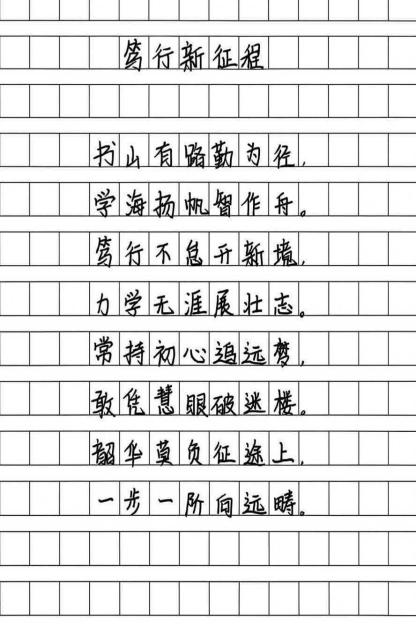 笃行新征程
书山有路勤为径，
学海扬帆智作舟。
笃行不怠开新境，
力学无涯展壮志。
常持初心追远梦，
敢凭慧眼破迷楼。
韶华莫负征途上，
一步一阶向远畴。